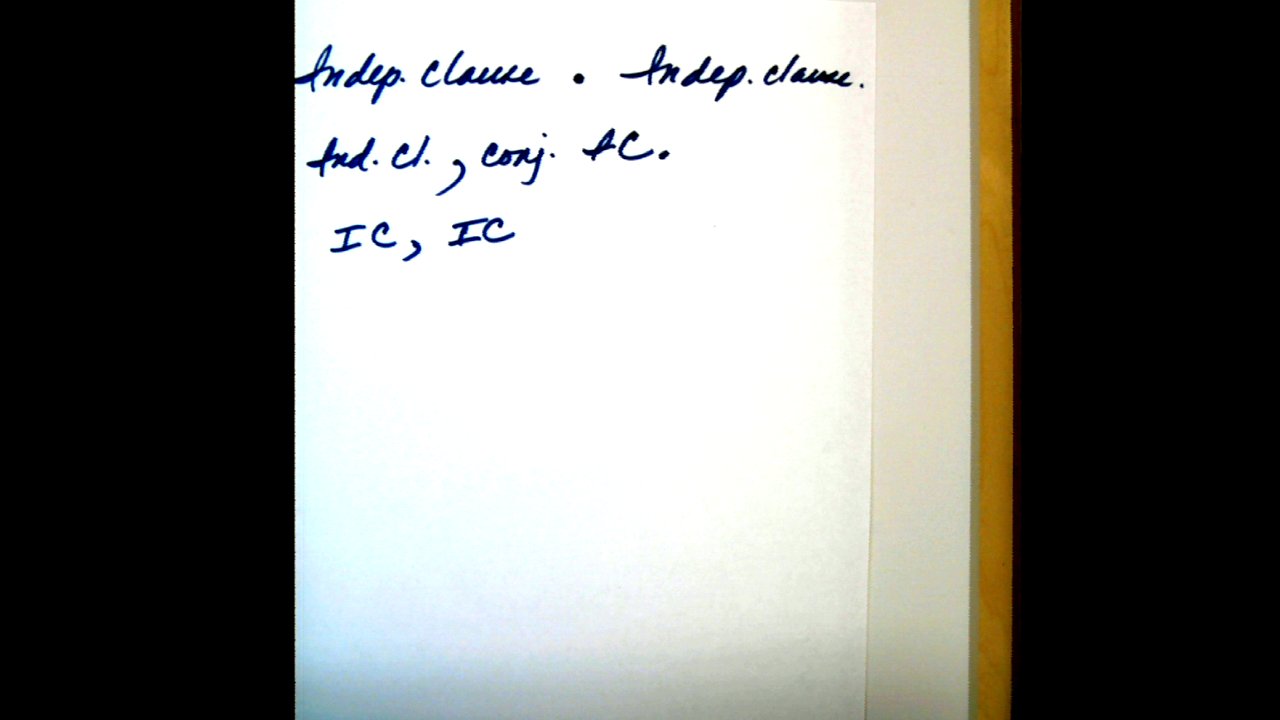 Indep. clause . Indep. clause.
Ind. cl., conj. IC.
IC, IC